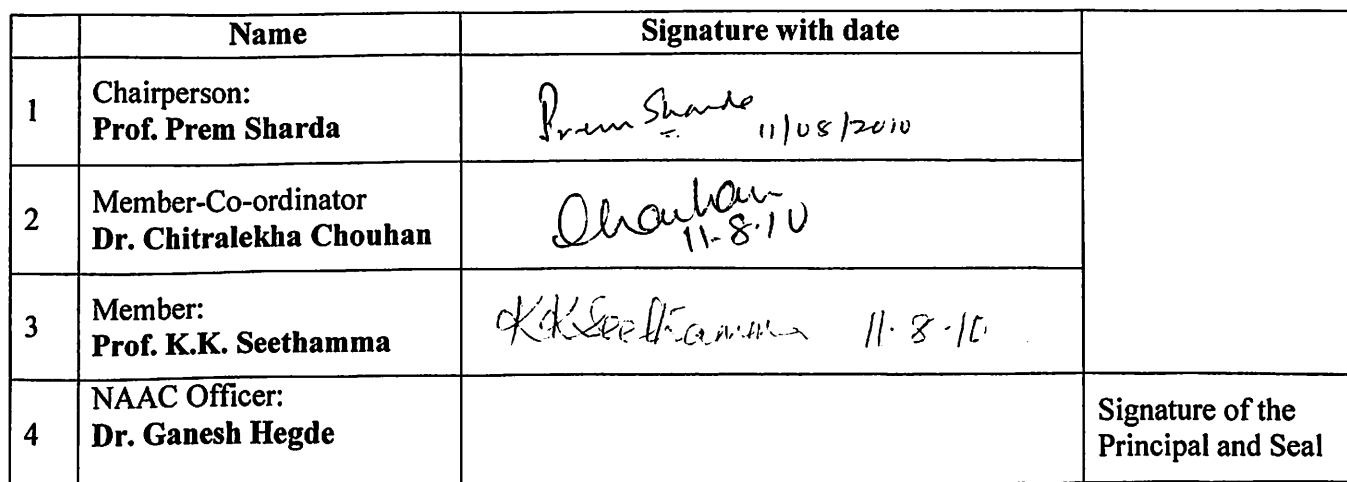 Name Signature with date
1 Chairperson:
Prof. Prem Sharda Prem Sharda 11/08/2010
2 Member-Co-ordinator
Dr. Chitralekha Chouhan Chouhan
11-8-10
3 Member:
Prof. K.K. Seethamma KKSeethamma 11-8-10
4 NAAC Officer:
Dr. Ganesh Hegde
Signature of the
Principal and Seal